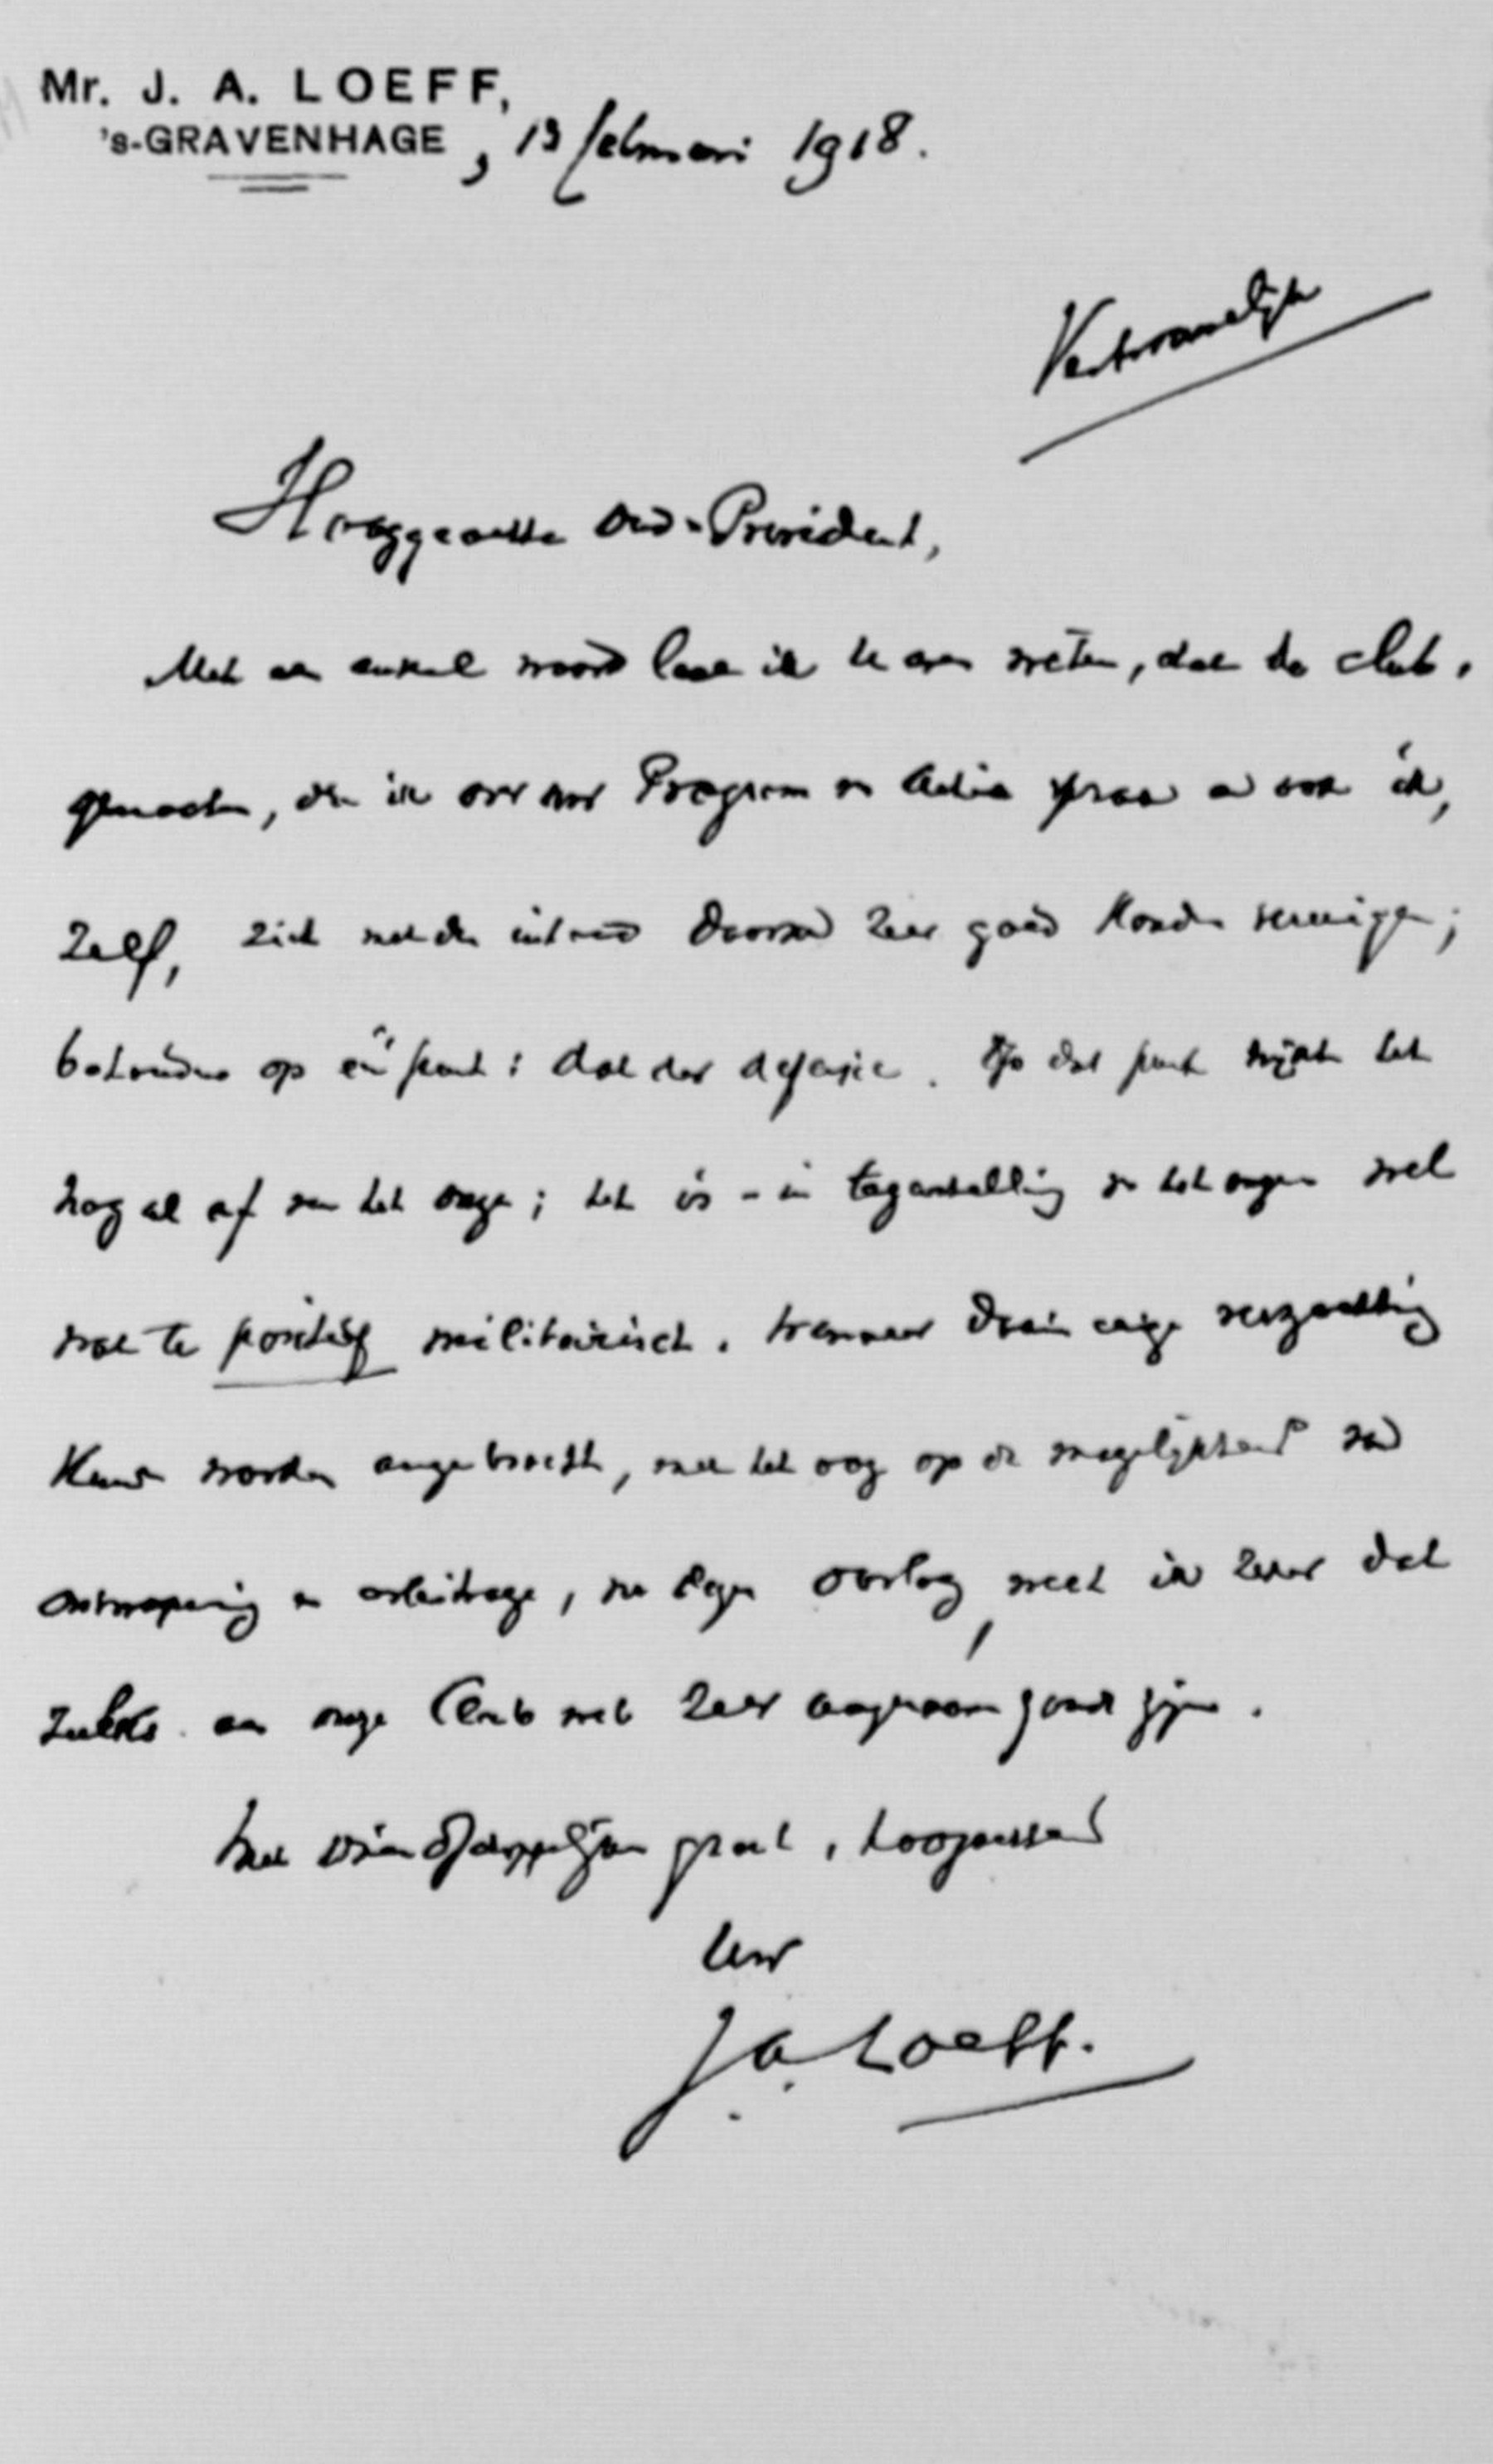 Mr. J. A. LOEFF,
's-GRAVENHAGE, 13 februari 1918.
Vertrouwelijk
Hooggeachte Oud-President,
Met een enkel woord laat ik U even weten, dat de club-
genooten, die ik over Program van Actie sprak en ook ik,
zelf, zich met den inhoud daarvan zeer goed konden vereenigen;
behoudens op één punt: dat der defensie. Op dat punt wijkt het
nog al af van het onze; het is - in tegenstelling van het onze wel
wat te positief militairistisch. Wanneer daarin eenige verzachting
kan worden aangebracht, met het oog op de mogelijkheid van
ontwapening en arbitrage, na dezen oorlog, weet ik zeker dat
zulks aan onze Club met zeer aangenaam zoude zijn.
Met vriendschappelijken groet, hoogachtend
Uw
J.A. Loeff.